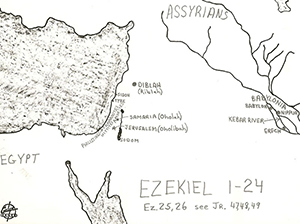 ASSYRIANS
DIBLAH
(Riblah)
SIDON
TYRE
BABYLONIA
BABYLON
NIPPUR
SAMARIA (Oholah)
KEBAR RIVER
JERUSALEM (Oholibah)
ERECH
SODOM
EGYPT
EZEKIEL 1-24
Ez. 25, 26 see JR. 47,48,49